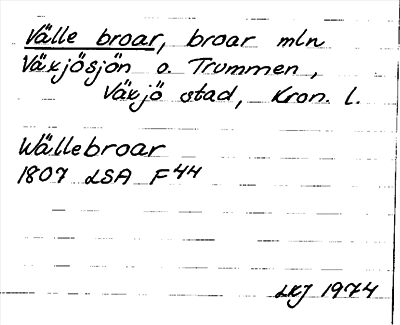 Välle broar, broar mln
Växjösjön o. Trummen,
Växjö stad, Kron. l.
Wällebroar
1807 LSA F44
LKJ 1974